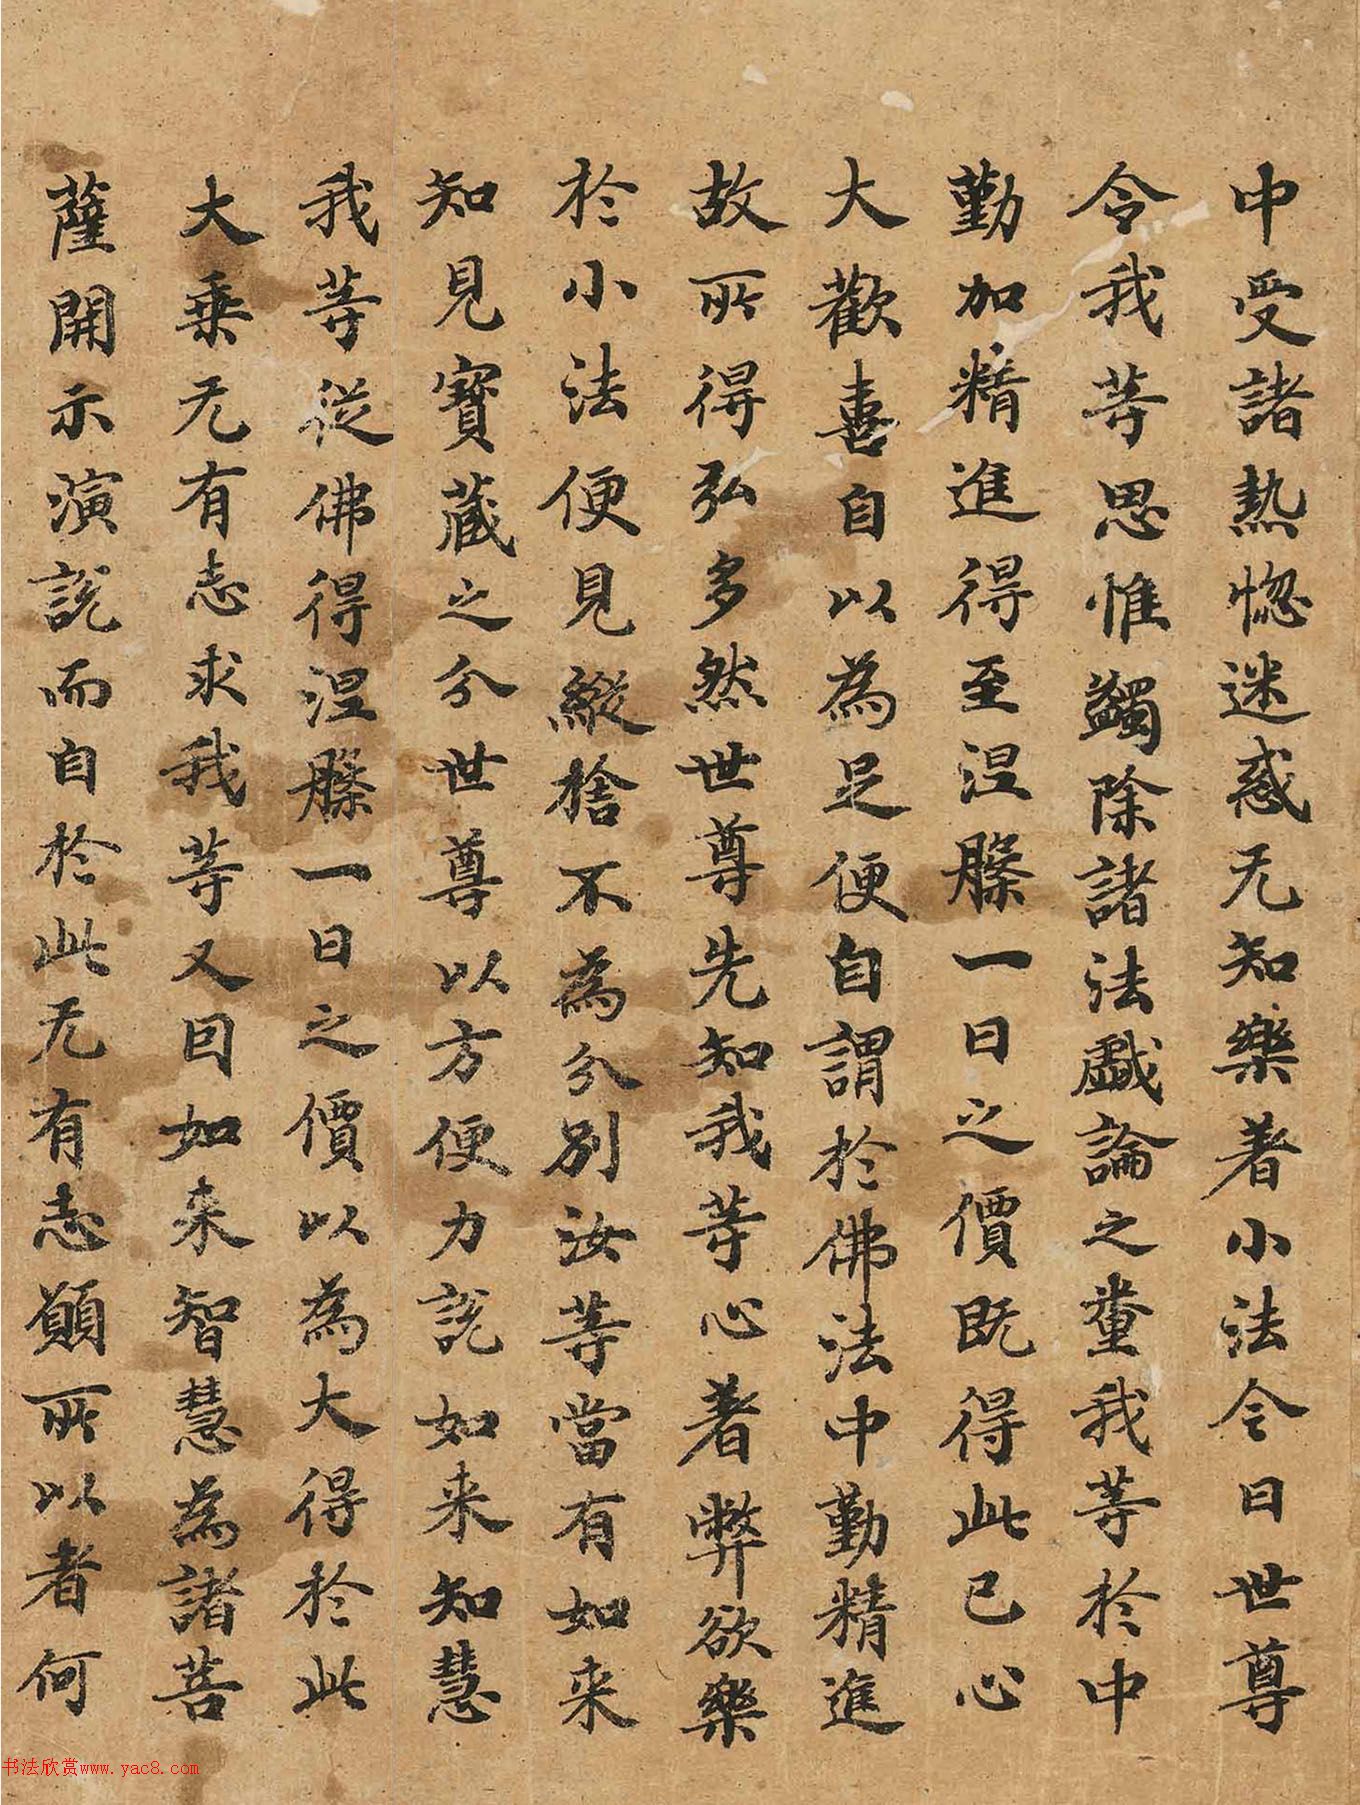 中受諸熱惚迷惑无知樂著小法今日世尊
令我等思惟蠲除諸法戲論之糞我等於中
勤加精進得至涅槃一日之價既得此已心
大歡喜自以為足便自謂於佛法中勤精進
故所得弘多然世尊先知我等心著弊欲樂
於小法便見縱捨不為分別汝等當有如来
知見寶藏之分世尊以方便力說如来知慧
我等從佛得涅槃一日之價以為大得於此
大乗无有志求我等又因如来智慧為諸菩
薩開示演說而自於此无有志願所以者何
书法欣赏www.yac8.com